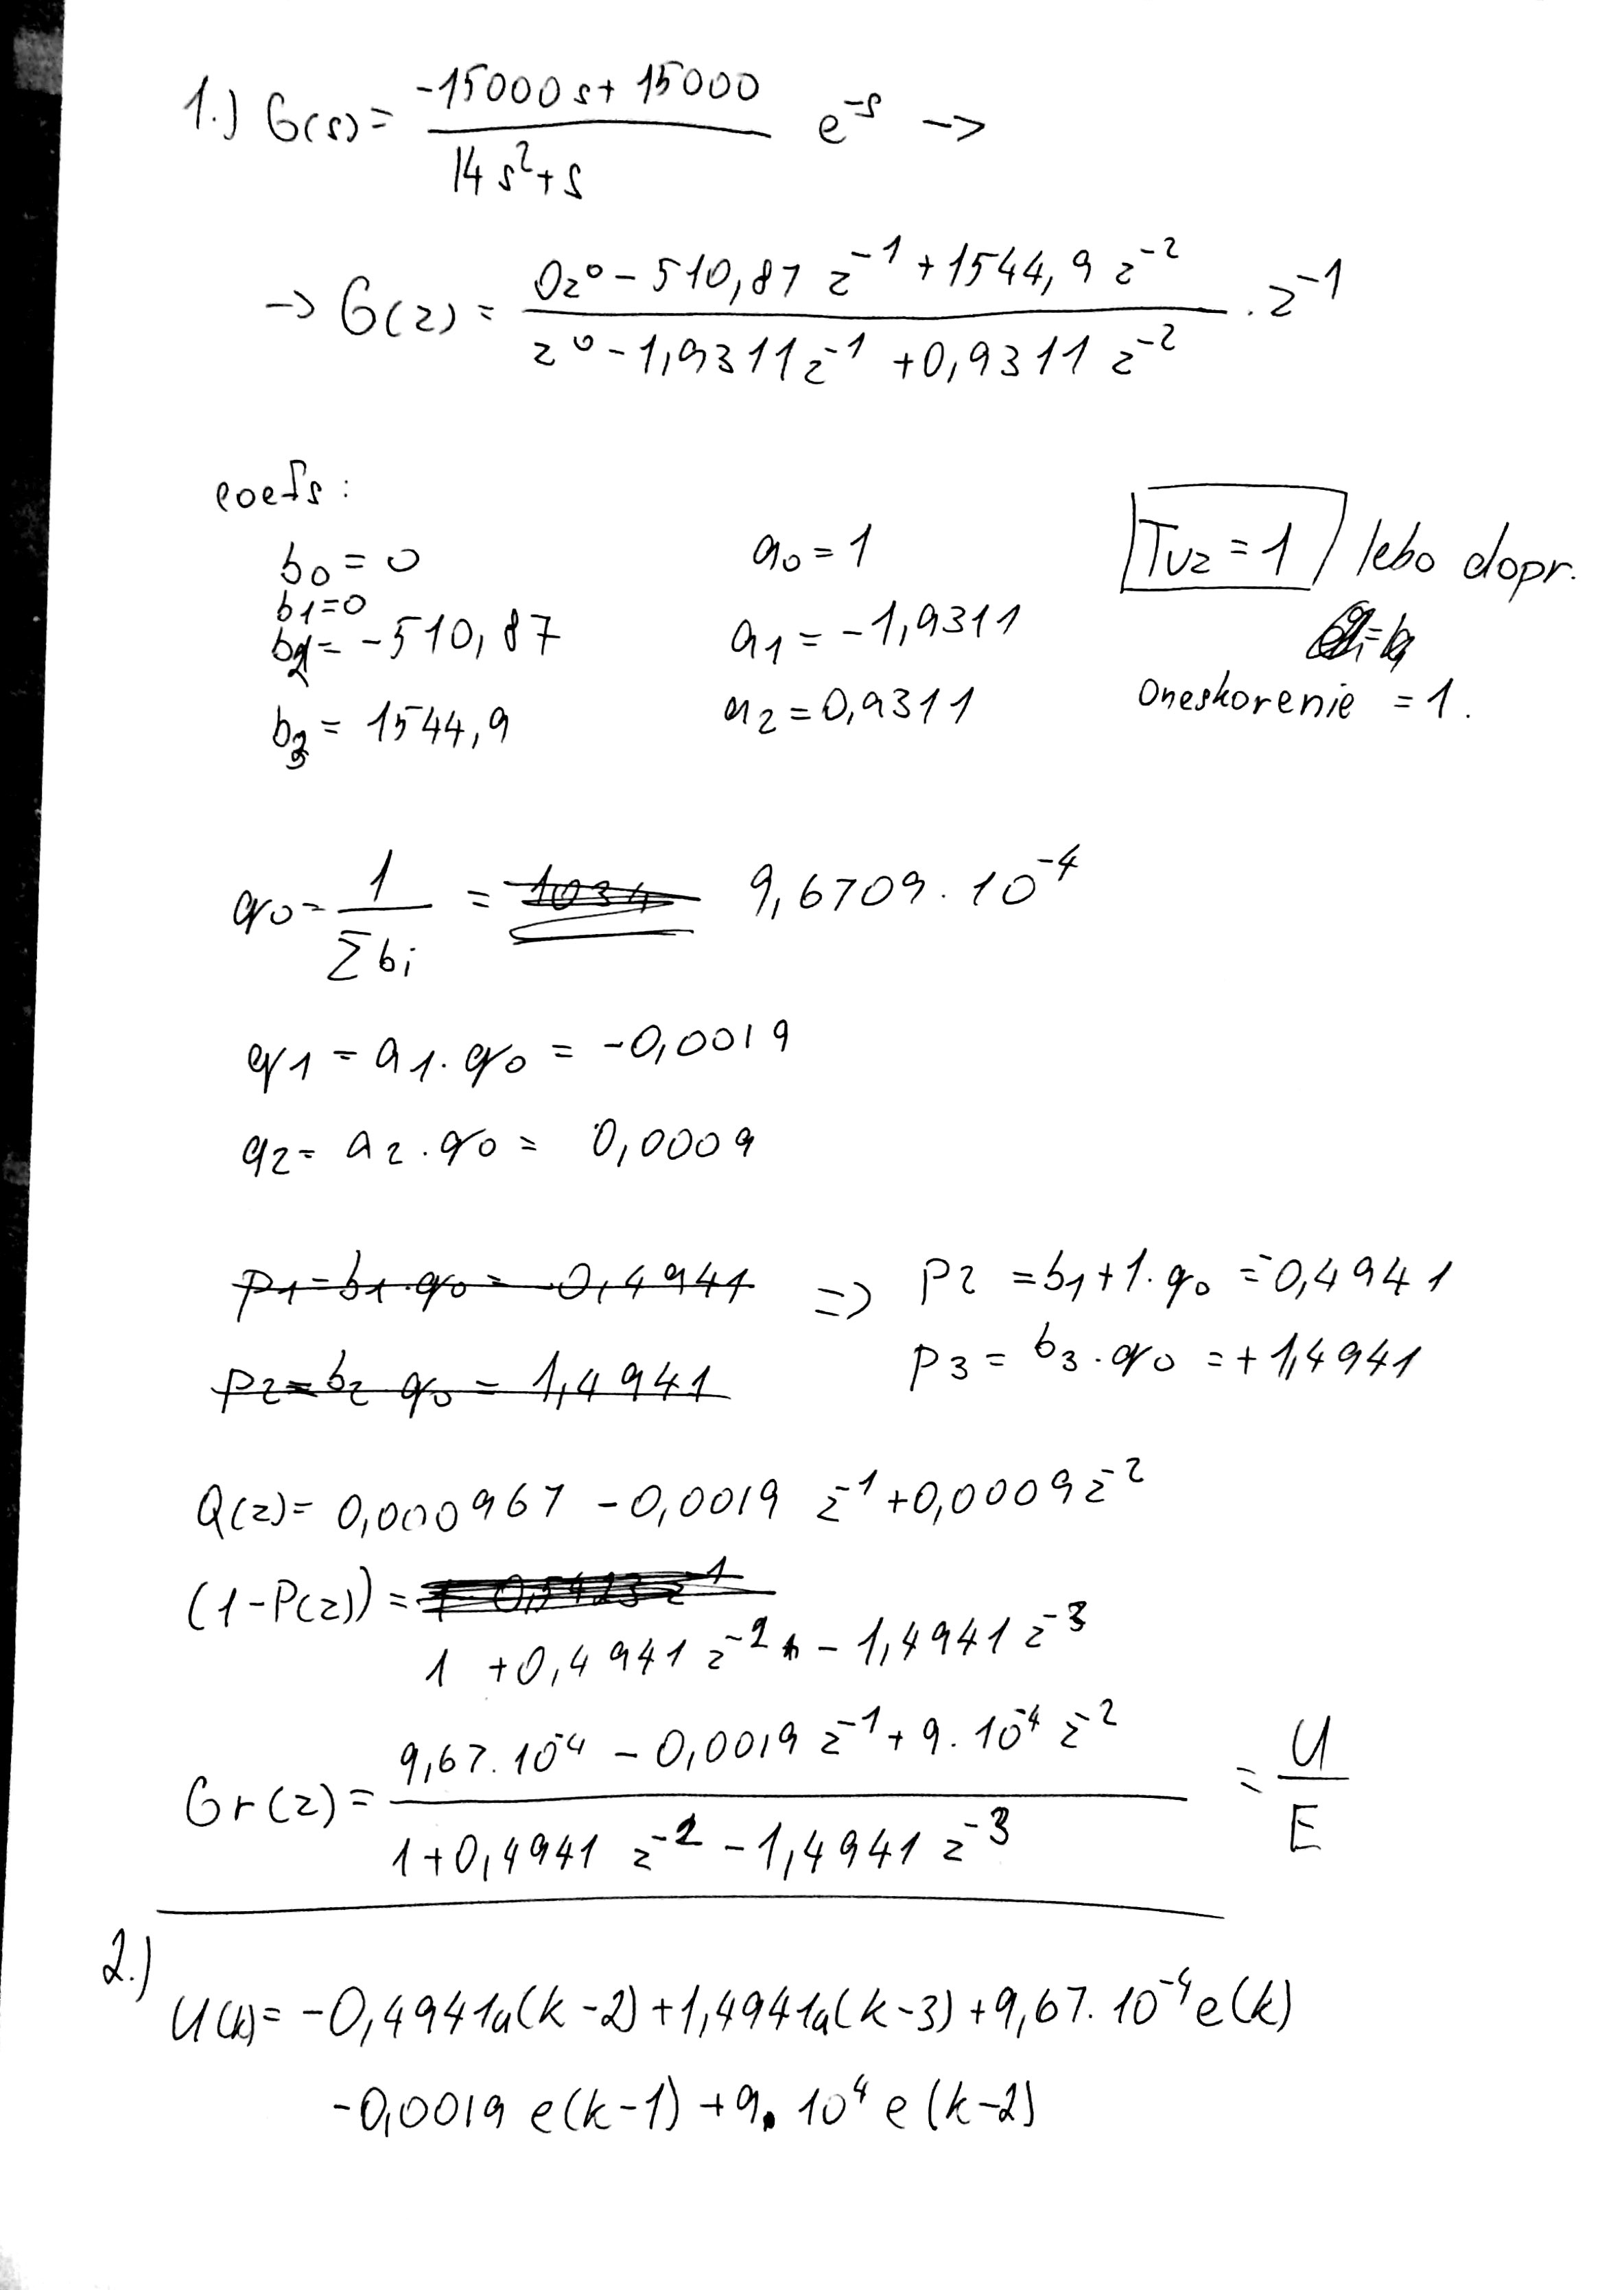 1.) G(s) = (-15000s + 15000) / (14s² + s) e^-s ->
-> G(z) = (0z⁰ - 510,87 z^-1 + 1544,9 z^-2) / (z⁰ - 1,9311z^-1 + 0,9311 z^-2) . z^-1
coefs :
b0 = 0 a0 = 1 Tvz = 1 lebo dopr.
b1=0
b2 = -510,87 a1 = -1,9311
b3 = 1544,9 a2 = 0,9311 oneskorenie = 1.
q0 = 1 / Σbi = 9,6709 . 10^-4
q1 = a1 . q0 = -0,0019
q2 = a2 . q0 = 0,0009
p1 = b1 . q0 = -0,4941 => p2 = b1+1 . q0 = -0,4941
p2 = b2 q0 = 1,4941 p3 = b3 . q0 = +1,4941
Q(z) = 0,000967 - 0,0019 z^-1 + 0,0009z^-2
(1-P(z)) =
1 + 0,4941 z^-2 - 1,4941 z^-3
Gr(z) = (9,67. 10^-4 - 0,0019 z^-1 + 9. 10^-4 z^-2) / (1 + 0,4941 z^-2 - 1,4941 z^-3) = U / E
2.)
U(k) = -0,4941u(k-2) + 1,4941u(k-3) + 9,67. 10^-4 e(k)
-0,0019 e(k-1) + 9. 10^4 e(k-2)